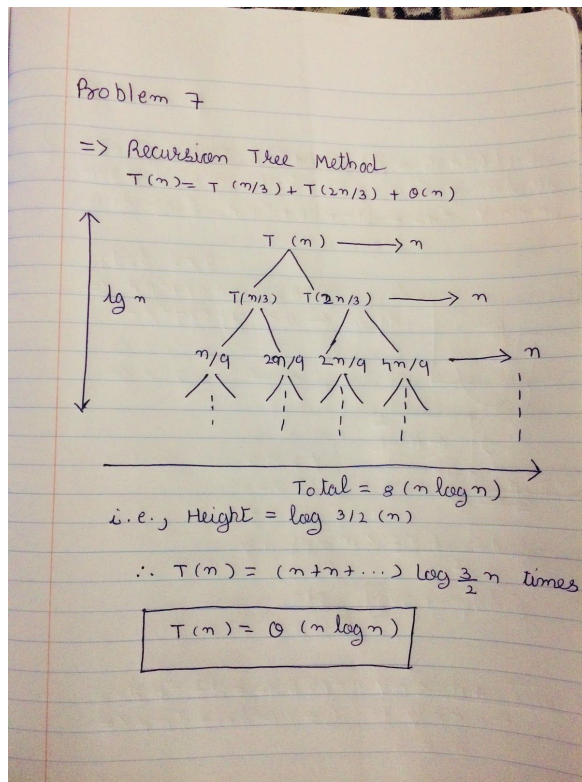 Problem 7
=> Recursion Tree Method
T(n) = T (n/3) + T(2n/3) + θ(n)
T (n) → n
lg n
T(n/3) T(2n/3) → n
n/9 2n/9 2n/9 4n/9 → n
Total = θ (n log n)
i.e., Height = log 3/2 (n)
∴ T(n) = (n+n+...) log 3/2 n times
T(n) = θ (n log n)